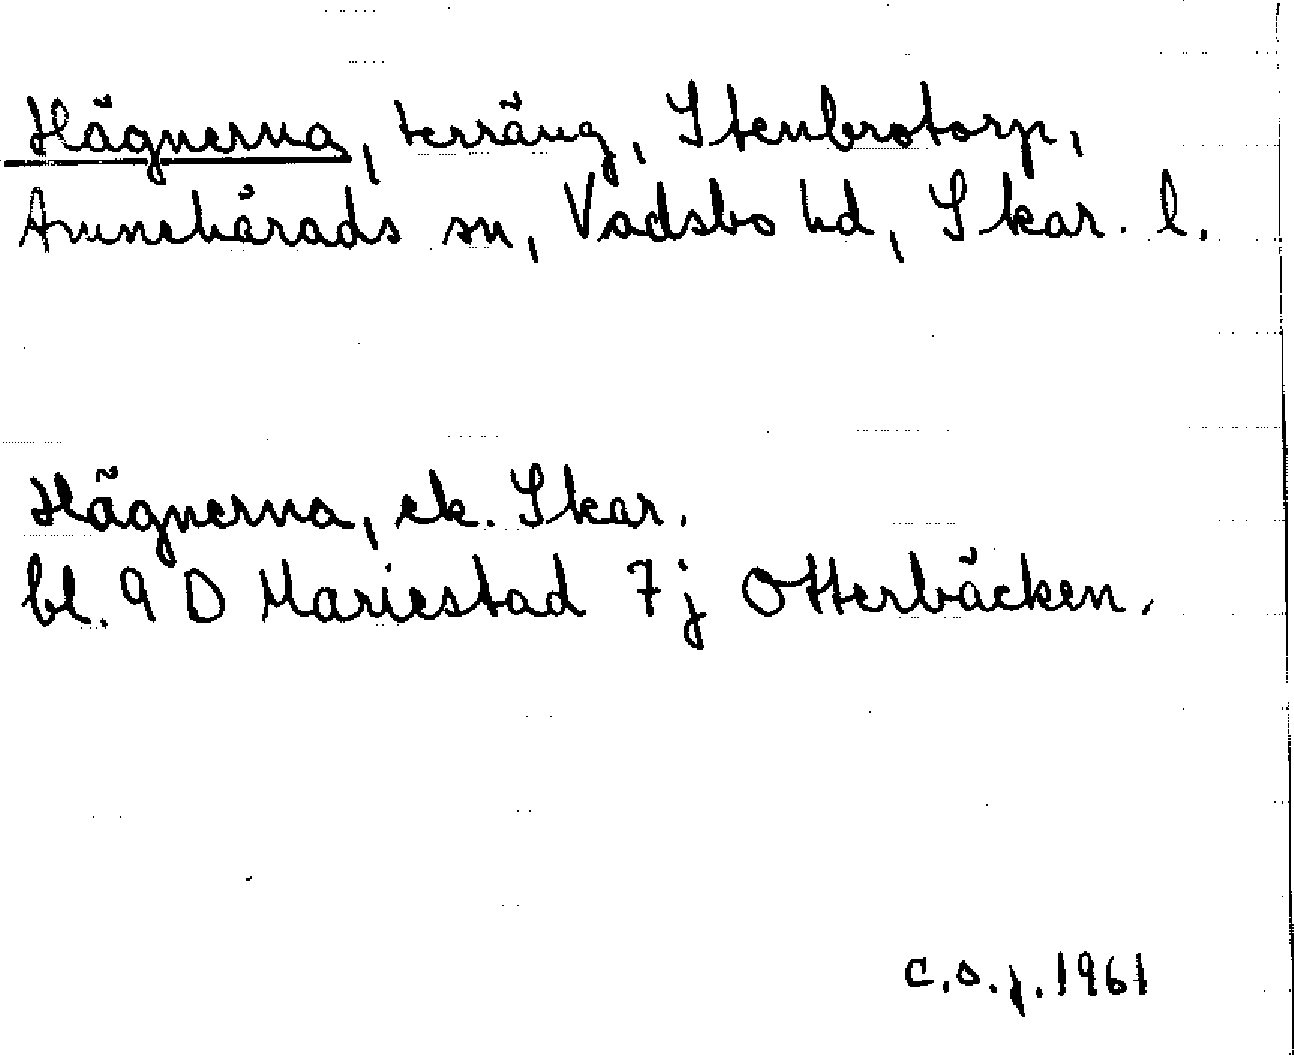 Hägnerna, terräng, Stenbrotorp,
Amnehärads sn, Vadsbo hd, Skar. l.
Hägnerna, ek. Skar.
bl. 9 D Mariestad 7j Otterbäcken.
c.s.j. 1961